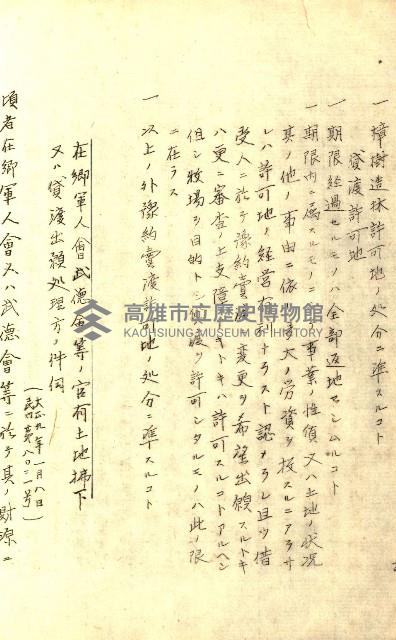 一 樟樹造林許可地ノ処分ニ準スルコト
貸渡許可地
一 期限経過セルモノハ全部返地セシムルコト
一 期限内ニ属スルモノニシテ事業ノ性質又ハ土地ノ状況
其ノ他ノ事由ニ依リ大ノ労資ヲ投スルニアラサ
レハ許可地ノ経営ナリトスト認メラレ且ツ借
受人ニ於テ予約売渡変更ヲ希望出願スルトキ
ハ更ニ審査ノ上支障ナキトキハ許可スルコトアルヘシ
但シ牧場ヲ目的トシ貸渡ヲ許可シタルモノハ此ノ限
ニ在ラス
一 以上ノ外豫約賣渡許可地ノ処分ニ準スルコト
在郷軍人會武德會等ノ官有土地拂下
又ハ貸渡出願処理方ノ件伺
(大正九年一月八日
民四第八〇三一号)
頃者在郷軍人會又ハ武德會等ニ於テ其ノ財源ニ
高雄市立歷史博物館
KAOHSIUNG MUSEUM OF HISTORY